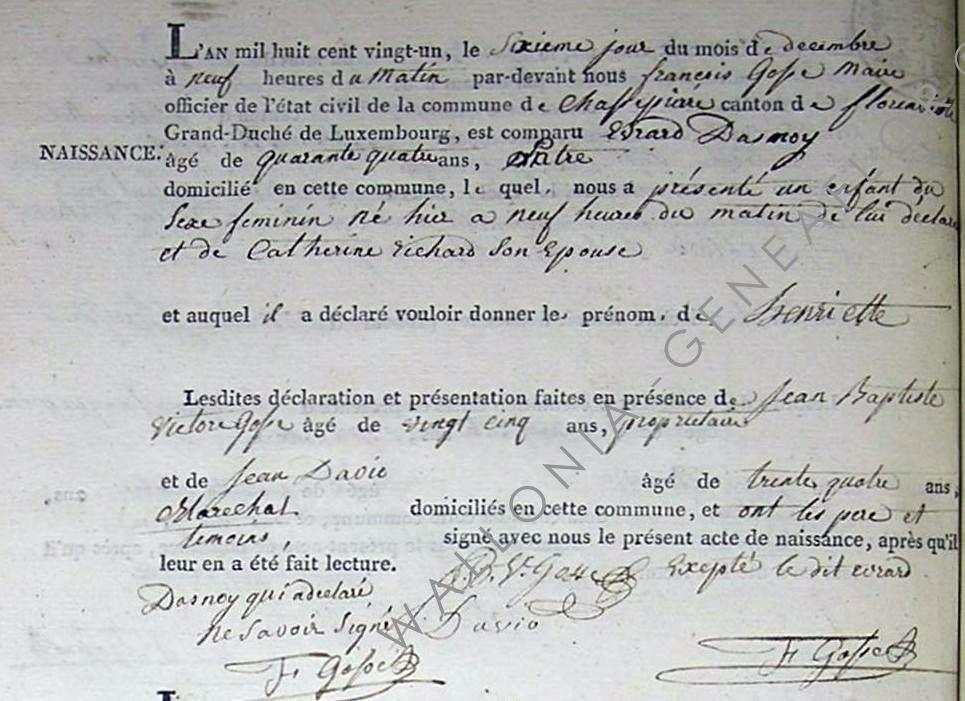 L'AN mil huit cent vingt-un, le Sixieme jour du mois de decembre
à neuf heures du Matin par-devant nous françois Gosse Maire
officier de l'état civil de la commune de Chassepierre canton de
Grand-Duché de Luxembourg, est comparu Evrard Dasnoy
NAISSANCE.
âgé de quarante quatre ans, Patre
domicilié en cette commune, le quel nous a présenté un enfant du
Sexe feminin né hier a neuf heures du matin de lui déclarant
et de Catherine richard Son Epouse
et auquel il a déclaré vouloir donner le prénom de henriette
Lesdites déclaration et présentation faites en présence de Jean Baptiste
Victor Gosse âgé de vingt cinq ans, proprietaire
et de Jean Davio âgé de trente quatre ans,
Marechal domiciliés en cette commune, et ont les pere et
temoins, signé avec nous le présent acte de naissance, après qu'il
leur en a été fait lecture. J. B. Vr Gosse Excepté le dit evrard
Dasnoy qui a declaré
ne Savoir Signé J Davio
F Gosse F Gosse
WALLONLA GENEA